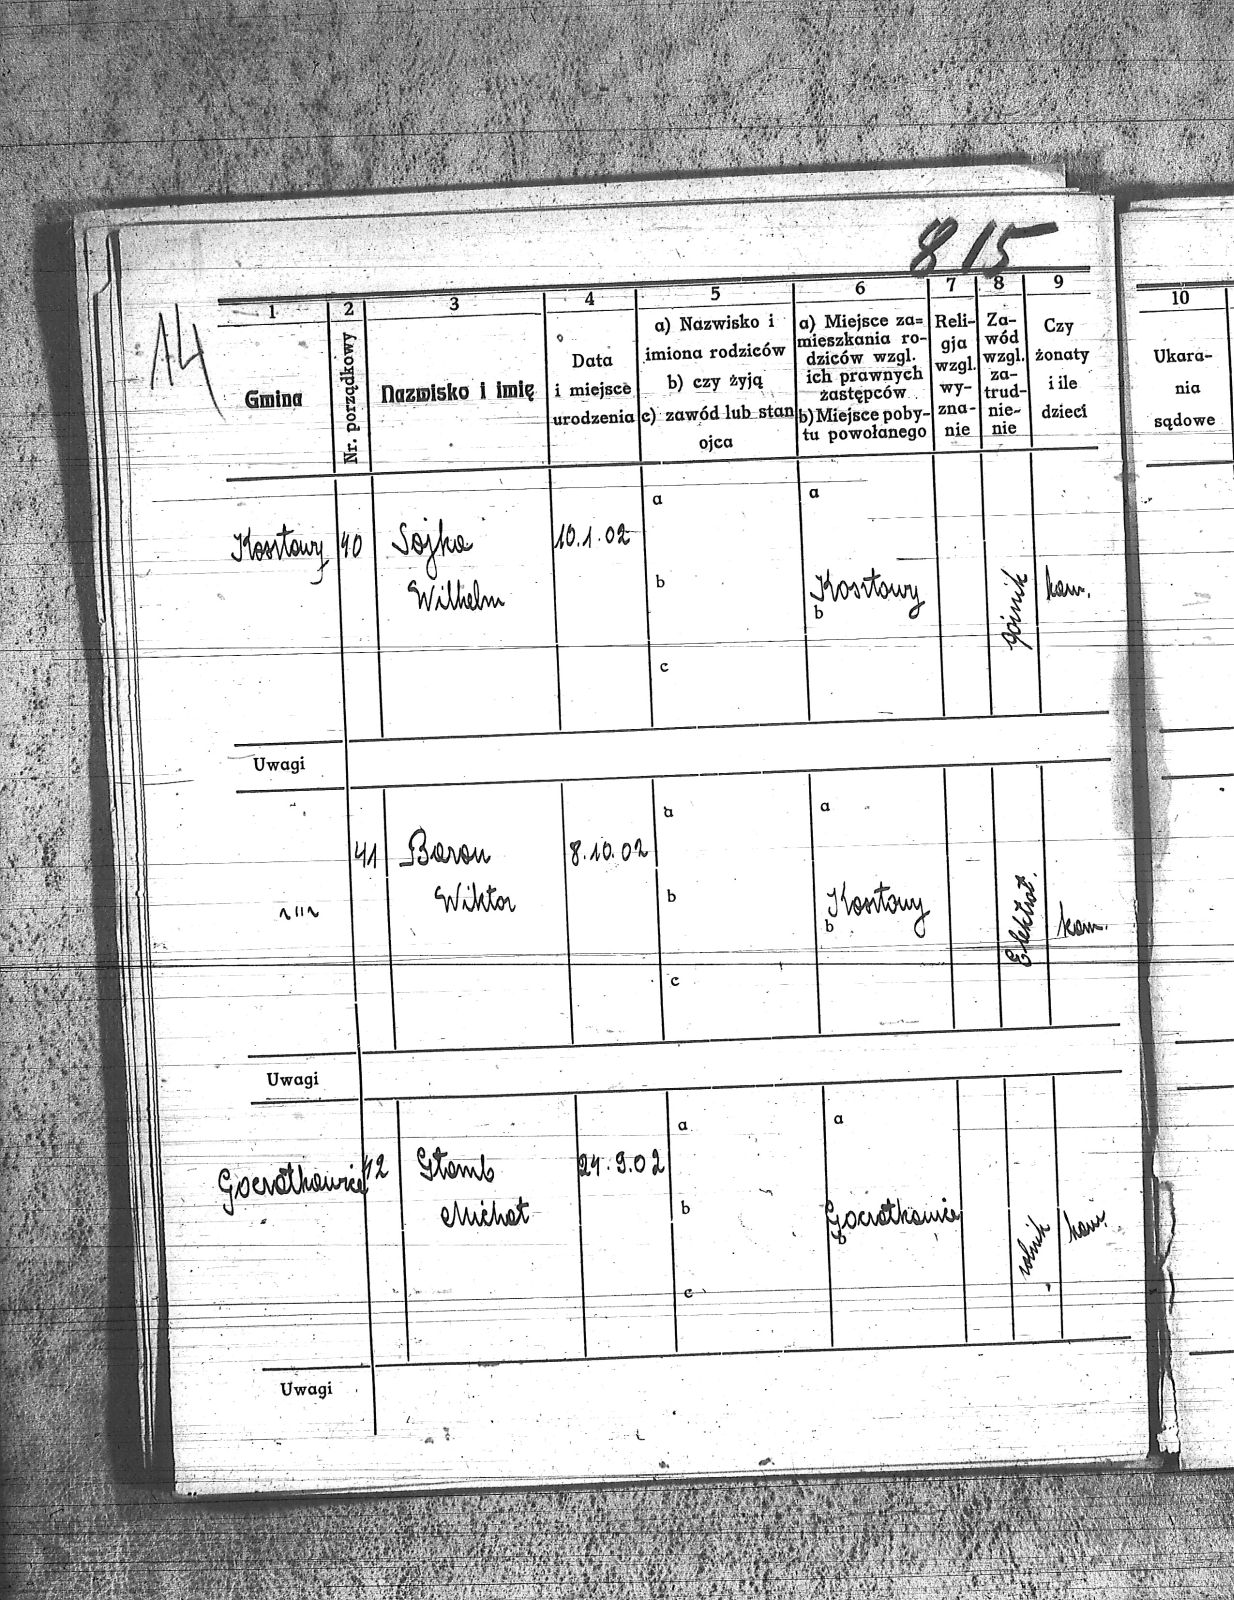 815
14
1
2
3
4
5
6
7
8
9
10
Gmina
Nr. porządkowy
Nazwisko i imię
Data
i miejsce
urodzenia
a) Nazwisko i
imiona rodziców
b) czy żyją
c) zawód lub stan
ojca
a) Miejsce za=
mieszkania ro-
dziców wzgl.
ich prawnych
zastępców
b) Miejsce poby-
tu powołanego
Reli-
gja
wzgl.
wy-
zna-
nie
Za-
wód
wzgl.
za-
trud-
nie-
nie
Czy
żonaty
i ile
dzieci
Ukara-
nia
sądowe
Kosztowy 40 Sojka 10.1.02
Wilhelm
a
b
c
a
Kosztowy
b
górnik
kaw.
Uwagi
41 Baron 8.10.02
~"~ Wiktor
a
b
c
a
Kosztowy
b
Elektrot.
kaw.
Uwagi
42
Michał
a
b
c
a
b
rolnik
kaw.
Uwagi